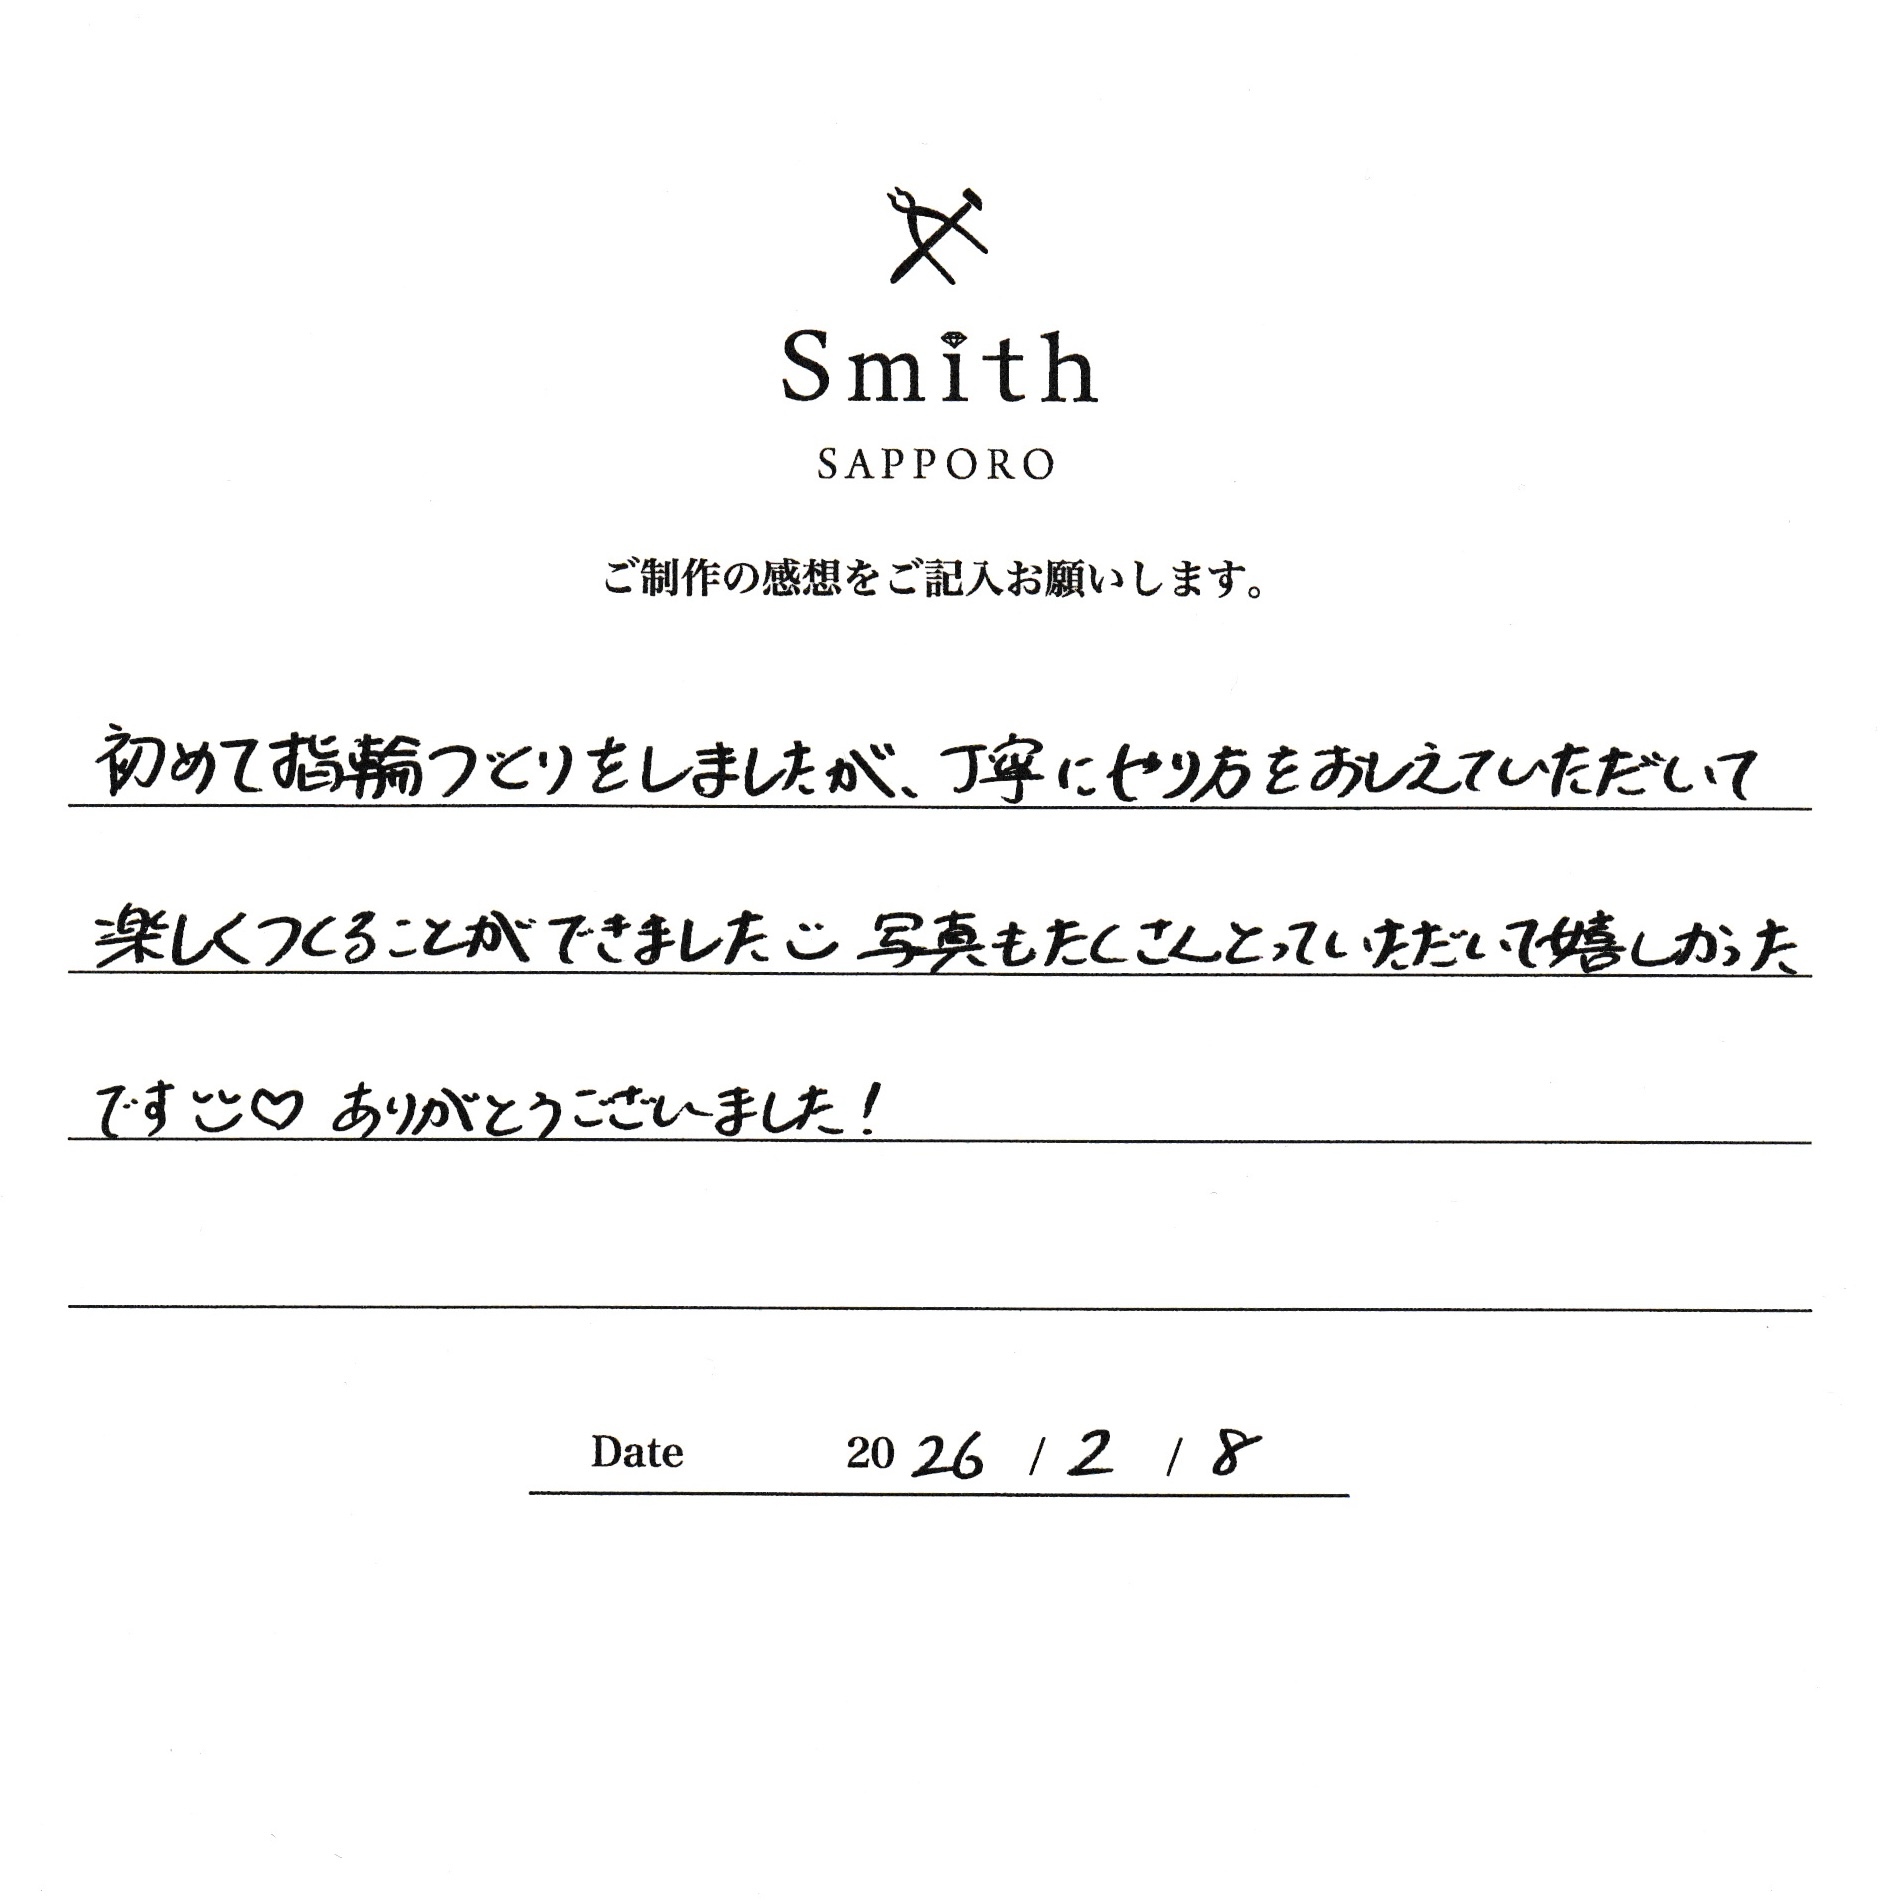 Smith
SAPPORO
ご制作の感想をご記入お願いします。
初めて指輪づくりをしましたが、丁寧にやり方をおしえていただいて
楽しくつくることができました 写真もたくさんとっていただいて嬉しかった
です♡ ありがとうございました!
Date 2026 / 2 / 8